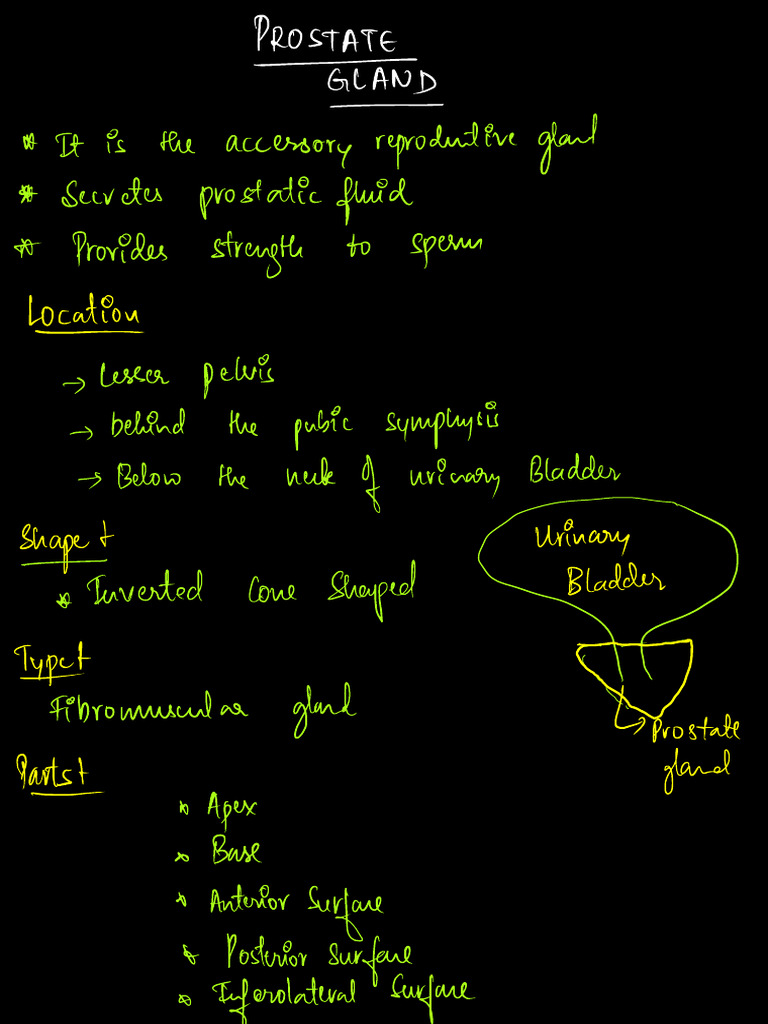 PROSTATE
GLAND
* It is the accessory reproductive gland
* Secretes prostatic fluid
* Provides strength to sperm
Location
→ Lesser pelvis
→ behind the pubic symphysis
→ Below the neck of urinary Bladder
Shape
* Inverted Cone Shaped
Urinary
Bladder
Type
Fibromuscular gland
Prostate
gland
Parts
* Apex
* Base
* Anterior Surface
* Posterior Surface
* Inferolateral Surface